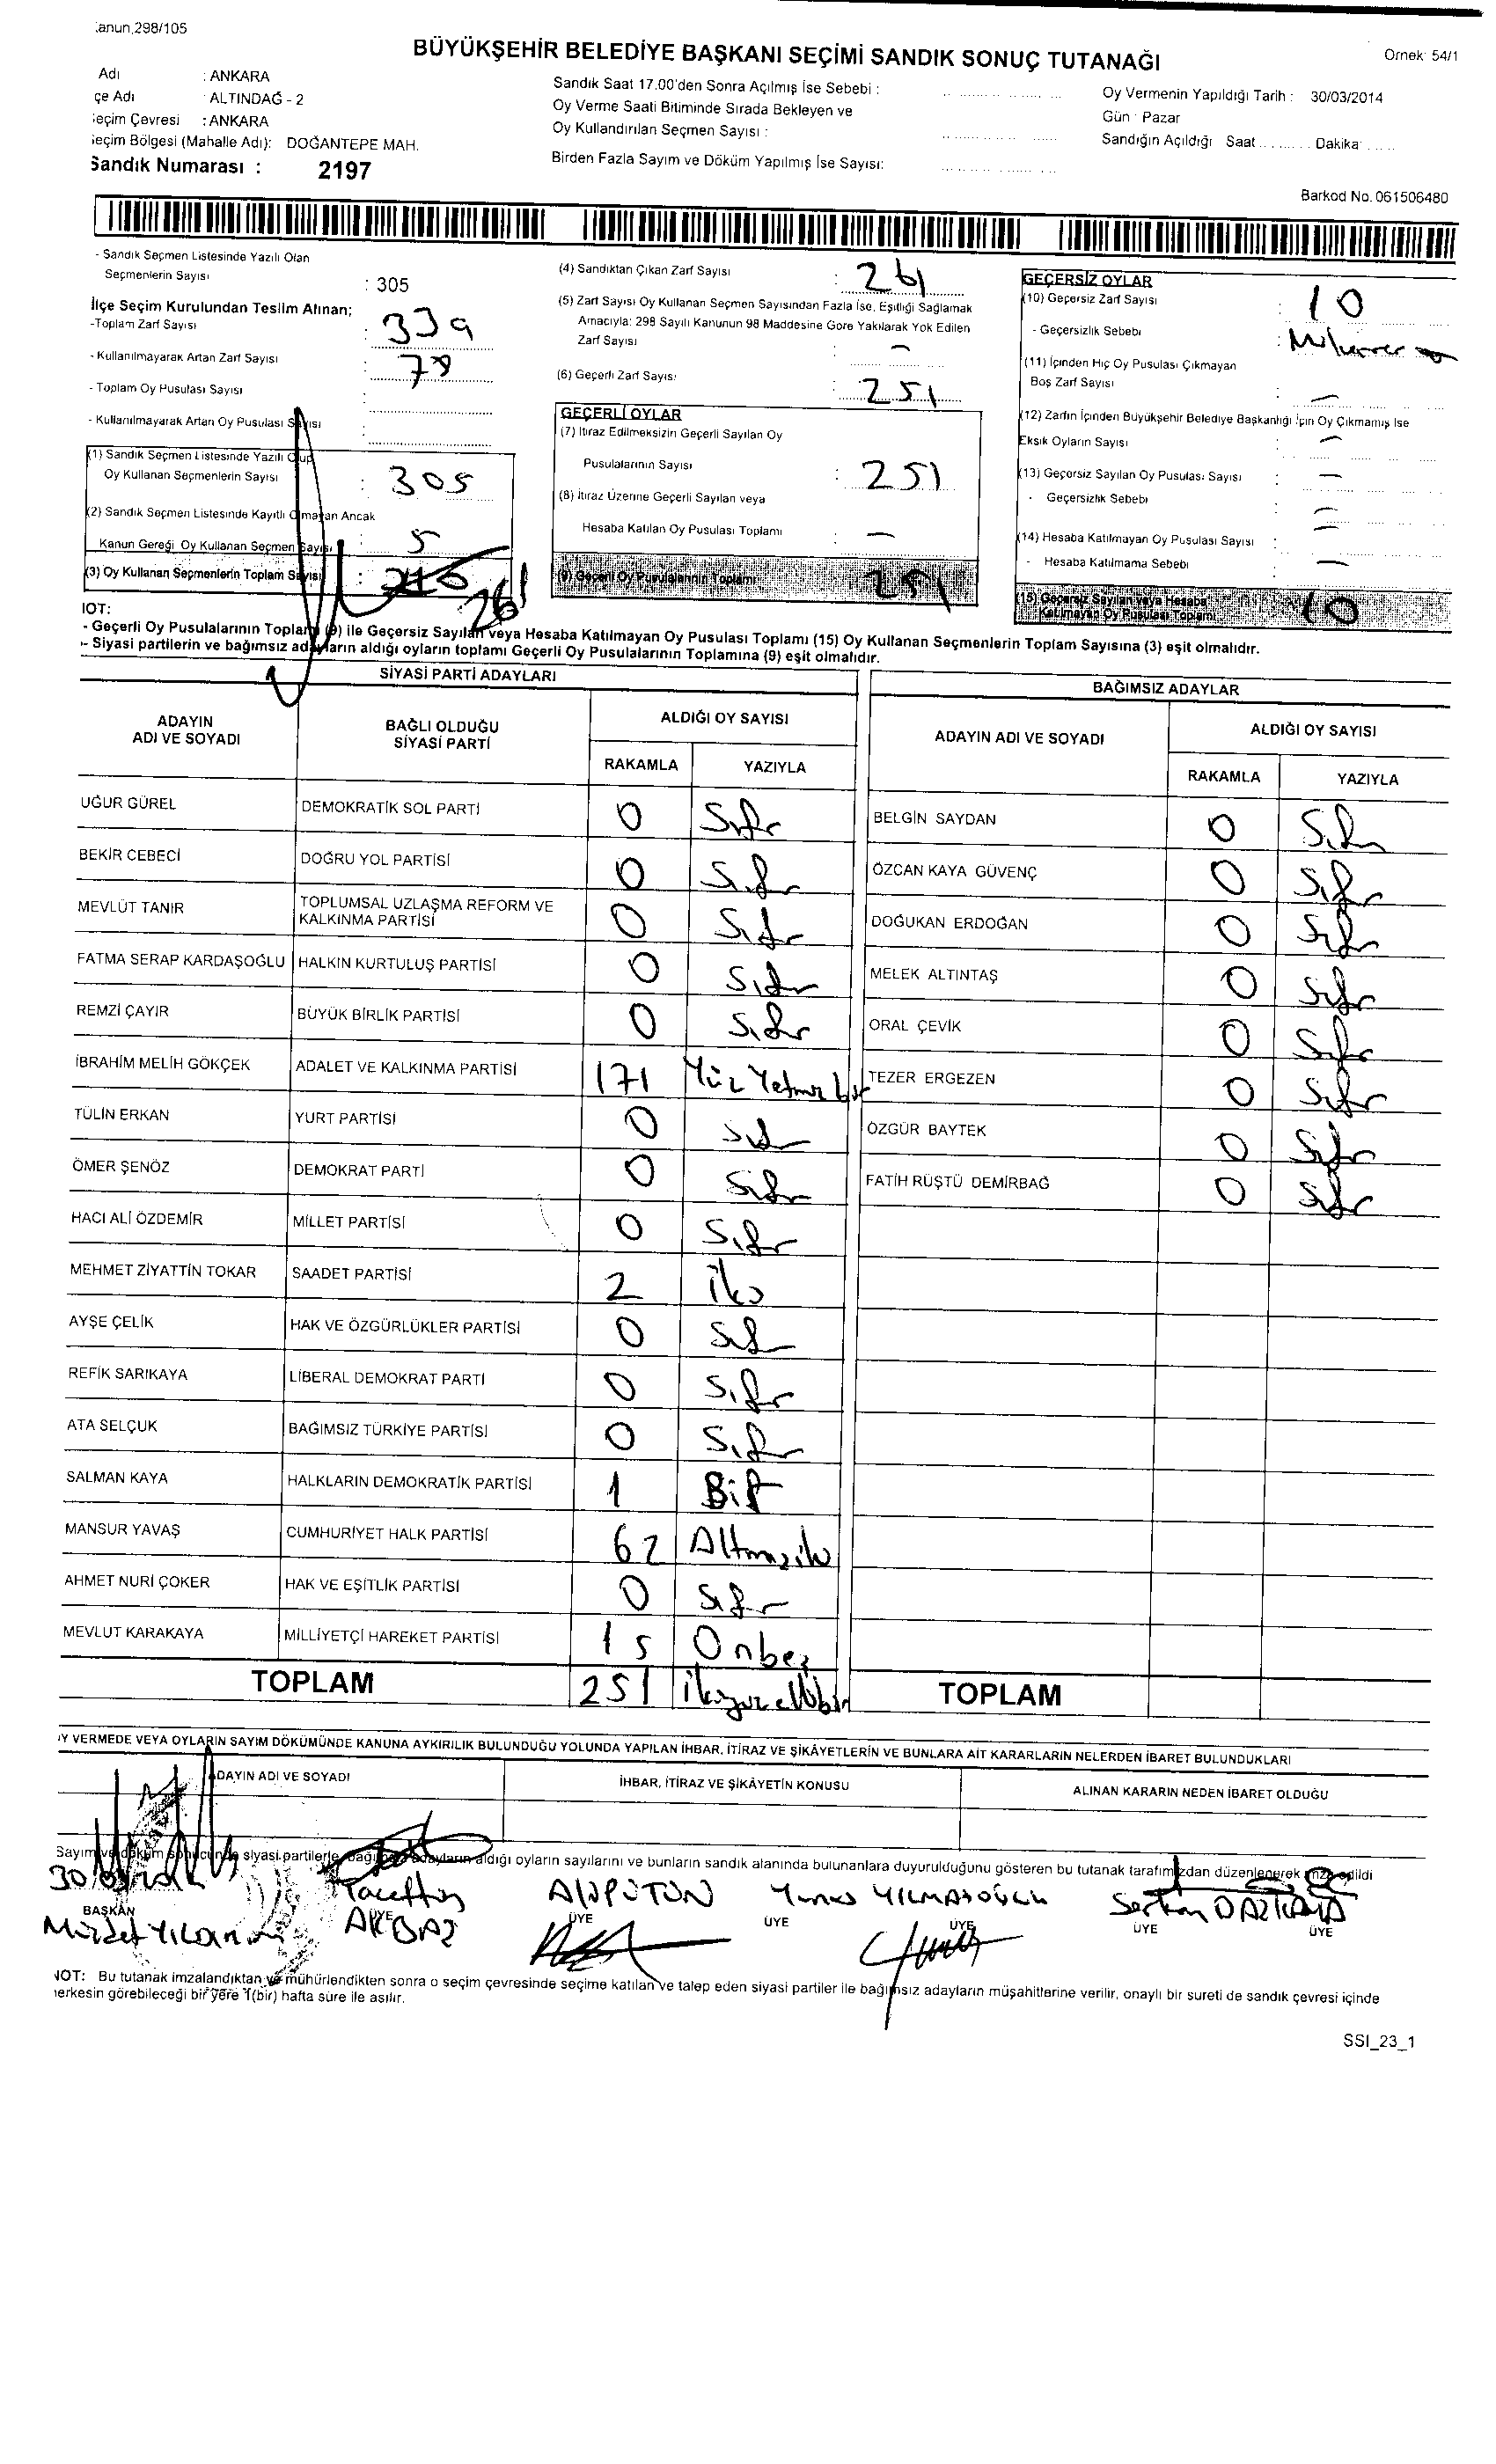 anun,298/105
BÜYÜKŞEHİR BELEDİYE BAŞKANI SEÇİMİ SANDIK SONUÇ TUTANAĞI
Örnek: 54/1
Adı : ANKARA
çe Adı ALTINDAĞ - 2
eçim Çevresi : ANKARA
eçim Bölgesi (Mahalle Adı): DOĞANTEPE MAH.
Sandık Numarası : 2197
Sandık Saat 17.00'den Sonra Açılmış İse Sebebi :
Oy Verme Saati Bitiminde Sırada Bekleyen ve
Oy Kullandırılan Seçmen Sayısı :
Birden Fazla Sayım ve Döküm Yapılmış İse Sayısı:
Oy Vermenin Yapıldığı Tarih : 30/03/2014
Gün : Pazar
Sandığın Açıldığı Saat ......... Dakika ......
Barkod No. 061506480
- Sandık Seçmen Listesinde Yazılı Olan
Seçmenlerin Sayısı : 305
İlçe Seçim Kurulundan Teslim Alınan;
-Toplam Zarf Sayısı : 339
- Kullanılmayarak Artan Zarf Sayısı : 78
- Toplam Oy Pusulası Sayısı :
- Kullanılmayarak Artan Oy Pusulası Sayısı :
(1) Sandık Seçmen Listesinde Yazılı Olup
Oy Kullanan Seçmenlerin Sayısı : 305
(2) Sandık Seçmen Listesinde Kayıtlı Olmayan Ancak
Kanun Gereği Oy Kullanan Seçmen Sayısı : 5
(3) Oy Kullanan Seçmenlerin Toplam Sayısı : 261
(4) Sandıktan Çıkan Zarf Sayısı : 261
(5) Zarf Sayısı Oy Kullanan Seçmen Sayısından Fazla İse, Eşitliği Sağlamak
Amacıyla: 298 Sayılı Kanunun 98 Maddesine Göre Yakılarak Yok Edilen
Zarf Sayısı : -
(6) Geçerli Zarf Sayısı : 251
GEÇERLİ OYLAR
(7) İtiraz Edilmeksizin Geçerli Sayılan Oy
Pusulalarının Sayısı : 251
(8) İtiraz Üzerine Geçerli Sayılan veya
Hesaba Katılan Oy Pusulası Toplamı : -
(9) Geçerli Oy Pusulalarının Toplamı 251
GEÇERSİZ OYLAR
(10) Geçersiz Zarf Sayısı : 10
- Geçersizlik Sebebi :
(11) İçinden Hiç Oy Pusulası Çıkmayan
Boş Zarf Sayısı : -
(12) Zarfın İçinden Büyükşehir Belediye Başkanlığı İçin Oy Çıkmamış İse
Eksik Oyların Sayısı : -
(13) Geçersiz Sayılan Oy Pusulası Sayısı : -
- Geçersizlik Sebebi : -
(14) Hesaba Katılmayan Oy Pusulası Sayısı : -
- Hesaba Katılmama Sebebi : -
(15) Geçersiz Sayılan veya Hesaba
Katılmayan Oy Pusulası Toplamı 10
IOT:
- Geçerli Oy Pusulalarının Toplamı (9) ile Geçersiz Sayılan veya Hesaba Katılmayan Oy Pusulası Toplamı (15) Oy Kullanan Seçmenlerin Toplam Sayısına (3) eşit olmalıdır.
- Siyasi partilerin ve bağımsız adayların aldığı oyların toplamı Geçerli Oy Pusulalarının Toplamına (9) eşit olmalıdır.
SİYASİ PARTİ ADAYLARI
ADAYIN ADI VE SOYADI
BAĞLI OLDUĞU SİYASİ PARTİ
ALDIĞI OY SAYISI
RAKAMLA YAZIYLA
UĞUR GÜREL DEMOKRATİK SOL PARTİ 0 Sıfır
BEKİR CEBECİ DOĞRU YOL PARTİSİ 0 Sıfır
MEVLÜT TANIR TOPLUMSAL UZLAŞMA REFORM VE KALKINMA PARTİSİ 0 Sıfır
FATMA SERAP KARDAŞOĞLU HALKIN KURTULUŞ PARTİSİ 0 Sıfır
REMZİ ÇAYIR BÜYÜK BİRLİK PARTİSİ 0 Sıfır
İBRAHİM MELİH GÖKÇEK ADALET VE KALKINMA PARTİSİ 171 Yüz Yetmiş bir
TÜLİN ERKAN YURT PARTİSİ 0 Sıfır
ÖMER ŞENÖZ DEMOKRAT PARTİ 0 Sıfır
HACI ALİ ÖZDEMİR MİLLET PARTİSİ 0 Sıfır
MEHMET ZİYATTİN TOKAR SAADET PARTİSİ 2 İki
AYŞE ÇELİK HAK VE ÖZGÜRLÜKLER PARTİSİ 0 Sıfır
REFİK SARIKAYA LİBERAL DEMOKRAT PARTİ 0 Sıfır
ATA SELÇUK BAĞIMSIZ TÜRKİYE PARTİSİ 0 Sıfır
SALMAN KAYA HALKLARIN DEMOKRATİK PARTİSİ 1 Bir
MANSUR YAVAŞ CUMHURİYET HALK PARTİSİ 62 Altmışiki
AHMET NURİ ÇOKER HAK VE EŞİTLİK PARTİSİ 0 Sıfır
MEVLUT KARAKAYA MİLLİYETÇİ HAREKET PARTİSİ 15 Onbeş
TOPLAM 251 İkiyüzellibir
BAĞIMSIZ ADAYLAR
ADAYIN ADI VE SOYADI
ALDIĞI OY SAYISI
RAKAMLA YAZIYLA
BELGİN SAYDAN 0 Sıfır
ÖZCAN KAYA GÜVENÇ 0 Sıfır
DOĞUKAN ERDOĞAN 0 Sıfır
MELEK ALTINTAŞ 0 Sıfır
ORAL ÇEVİK 0 Sıfır
TEZER ERGEZEN 0 Sıfır
ÖZGÜR BAYTEK 0 Sıfır
FATİH RÜŞTÜ DEMİRBAĞ 0 Sıfır
TOPLAM
Y VERMEDE VEYA OYLARIN SAYIM DÖKÜMÜNDE KANUNA AYKIRILIK BULUNDUĞU YOLUNDA YAPILAN İHBAR, İTİRAZ VE ŞİKÂYETLERİN VE BUNLARA AİT KARARLARIN NELERDEN İBARET BULUNDUKLARI
ADAYIN ADI VE SOYADI
İHBAR, İTİRAZ VE ŞİKÂYETİN KONUSU
ALINAN KARARIN NEDEN İBARET OLDUĞU
Sayım ve döküm sonucunda siyasi partilerle bağımsız adayların aldığı oyların sayılarını ve bunların sandık alanında bulunanlara duyurulduğunu gösteren bu tutanak tarafımızdan düzenlenerek imza edildi
Tacettin AKBAZ
ALİ PÜTÜN
Yunus YILMAZOĞLU
Serkan DAZKAYA
BAŞKAN ÜYE ÜYE ÜYE ÜYE ÜYE ÜYE
NOT: Bu tutanak imzalandıktan ve mühürlendikten sonra o seçim çevresinde seçime katılan ve talep eden siyasi partiler ile bağımsız adayların müşahitlerine verilir, onaylı bir sureti de sandık çevresi içinde
erkesin görebileceği bir yere 1(bir) hafta süre ile asılır.
SSI_23_1